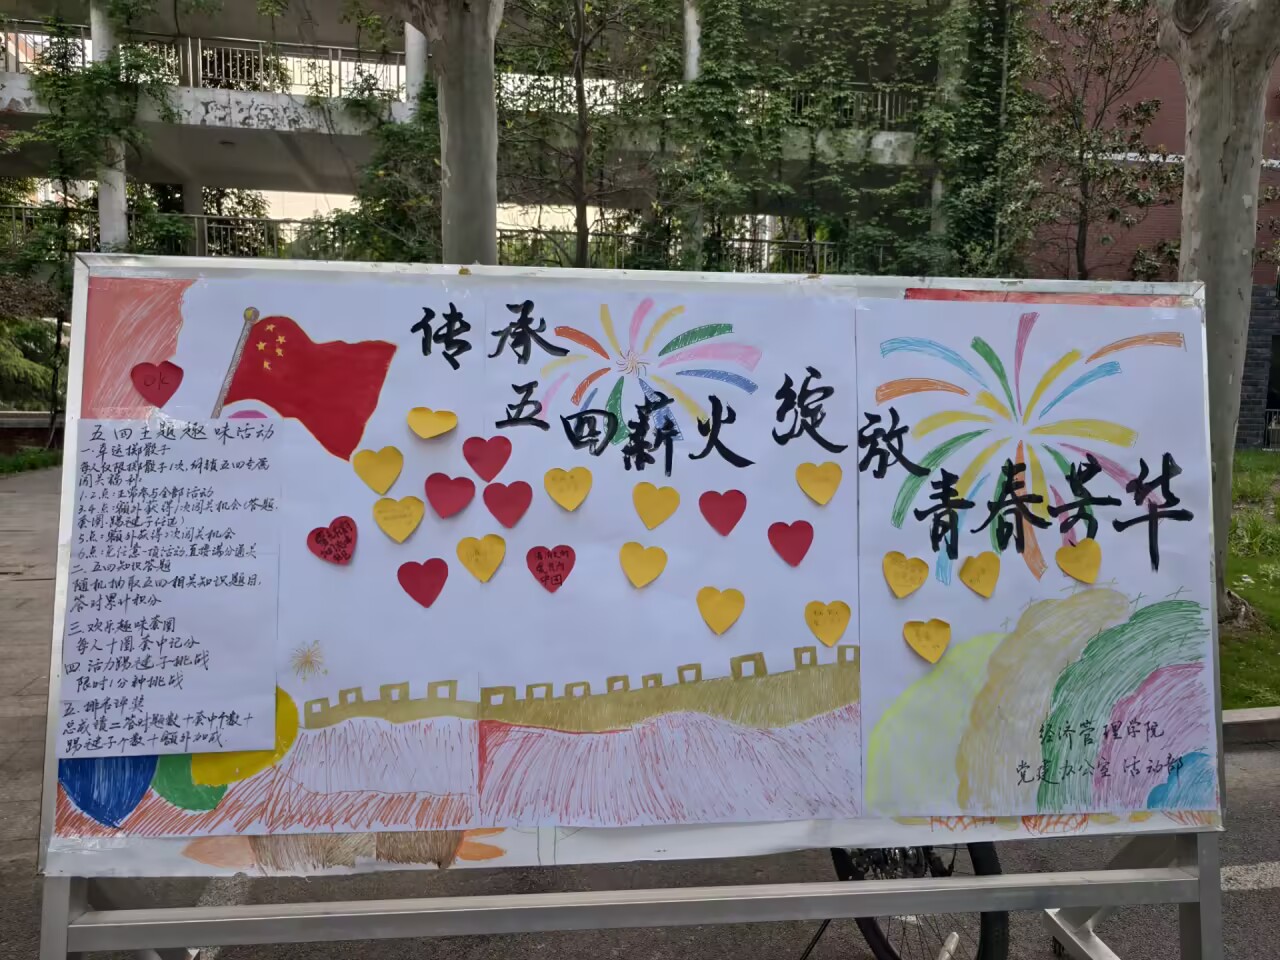 传承
五四薪火 绽放
青春芳华
ok
五四主题趣味活动
一.幸运掷骰子
每人仅限掷骰子1次,解锁五四专属
闯关福利
1.2.点:正常参与全部活动
3.4.点:额外获得1次闯关机会(答题,
套圈,踢毽子任选)
5点:额外获得2次闯关机会
6点:免任意一项活动直接得分通关
二.五四知识答题
随机抽取五四相关知识题目,
答对累计积分
三.欢乐趣味套圈
每人十圈,套中记分
四.活力踢毽子挑战
限时1分钟挑战
五.排名评奖
总成绩=答对题数+套中个数+
踢毽子个数+额外加成
中国
经济管理学院
党建办公室 活动部